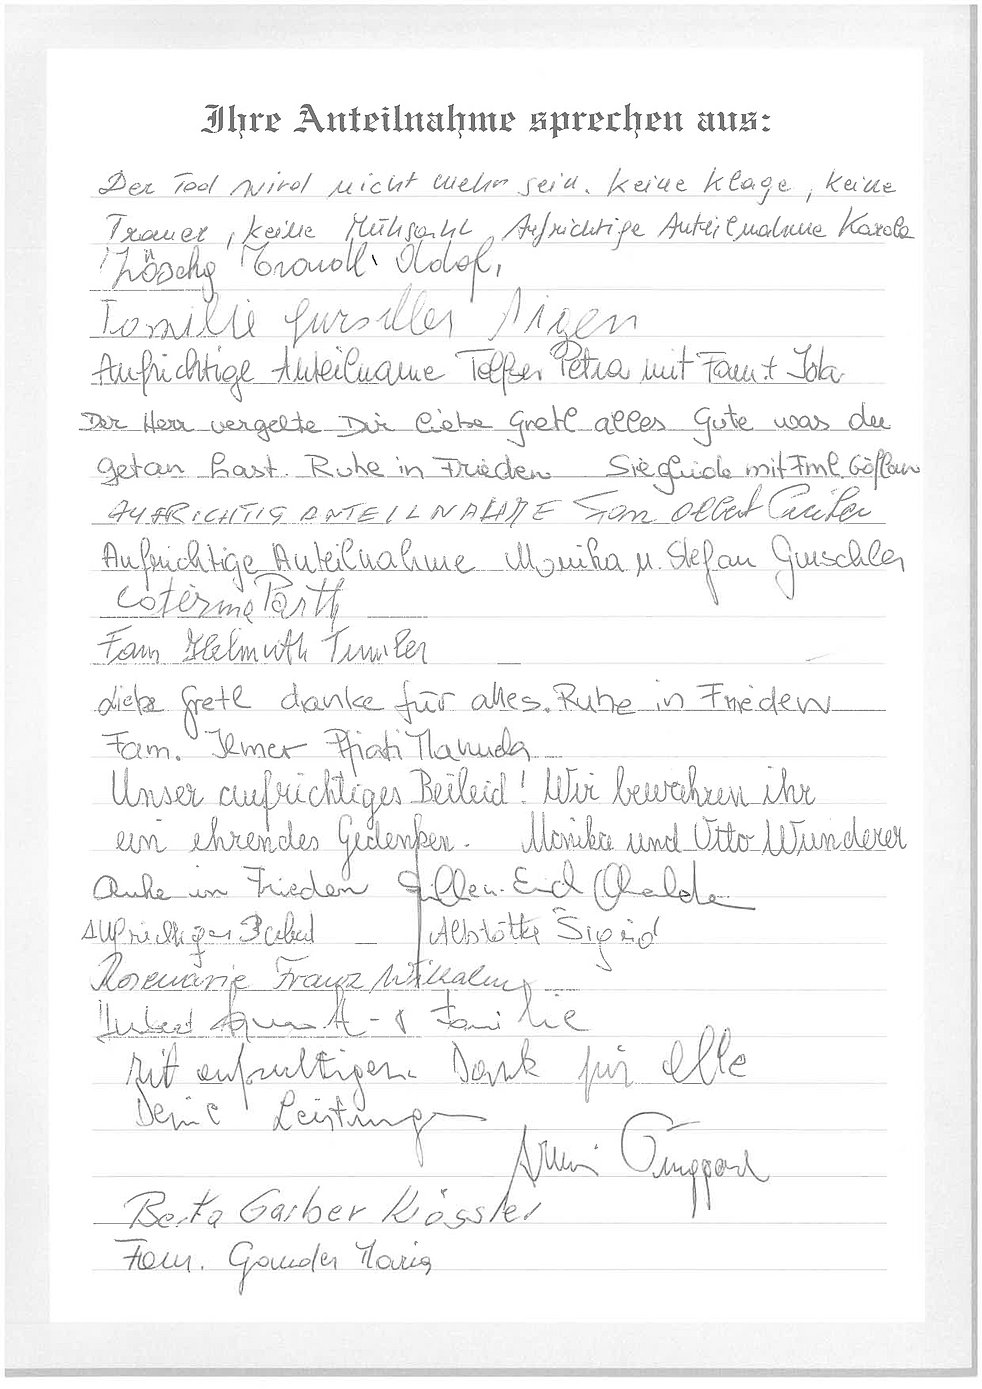 Ihre Anteilnahme sprechen aus:
Der Tod wird nicht mehr sein. keine Klage, keine
Trauer, keine Mühsahl Aufrichtige Anteilnahme Karola
Löschg
Familie Gurschler
Aufrichtige Anteilname Telfser Petra mit Fam + Ida
Der Herr vergelte Dir liebe Gretl alles Gute was du
getan hast. Ruhe in Frieden Sieglinde mit Fml. Göflan
AUFRICHTIG ANTEILNAHME Fam
Aufrichtige Anteilnahme Monika u. Stefan Gurschler
Parth
Fam Helmuth Tumler
Liebe Gretl danke für alles. Ruhe in Frieden
Fam. Ilmer
Unser aufrichtiges Beileid! Wir bewahren ihr
ein ehrendes Gedenken. Monika und Otto Wunderer
Ruhe in Frieden
Sigrid
Rosemarie Franz Wilhalm
Familie
Mit aufrichtigen Dank für alle
Deine Leistungen
Berta Garber Kössler
Fam. Gamder Maria